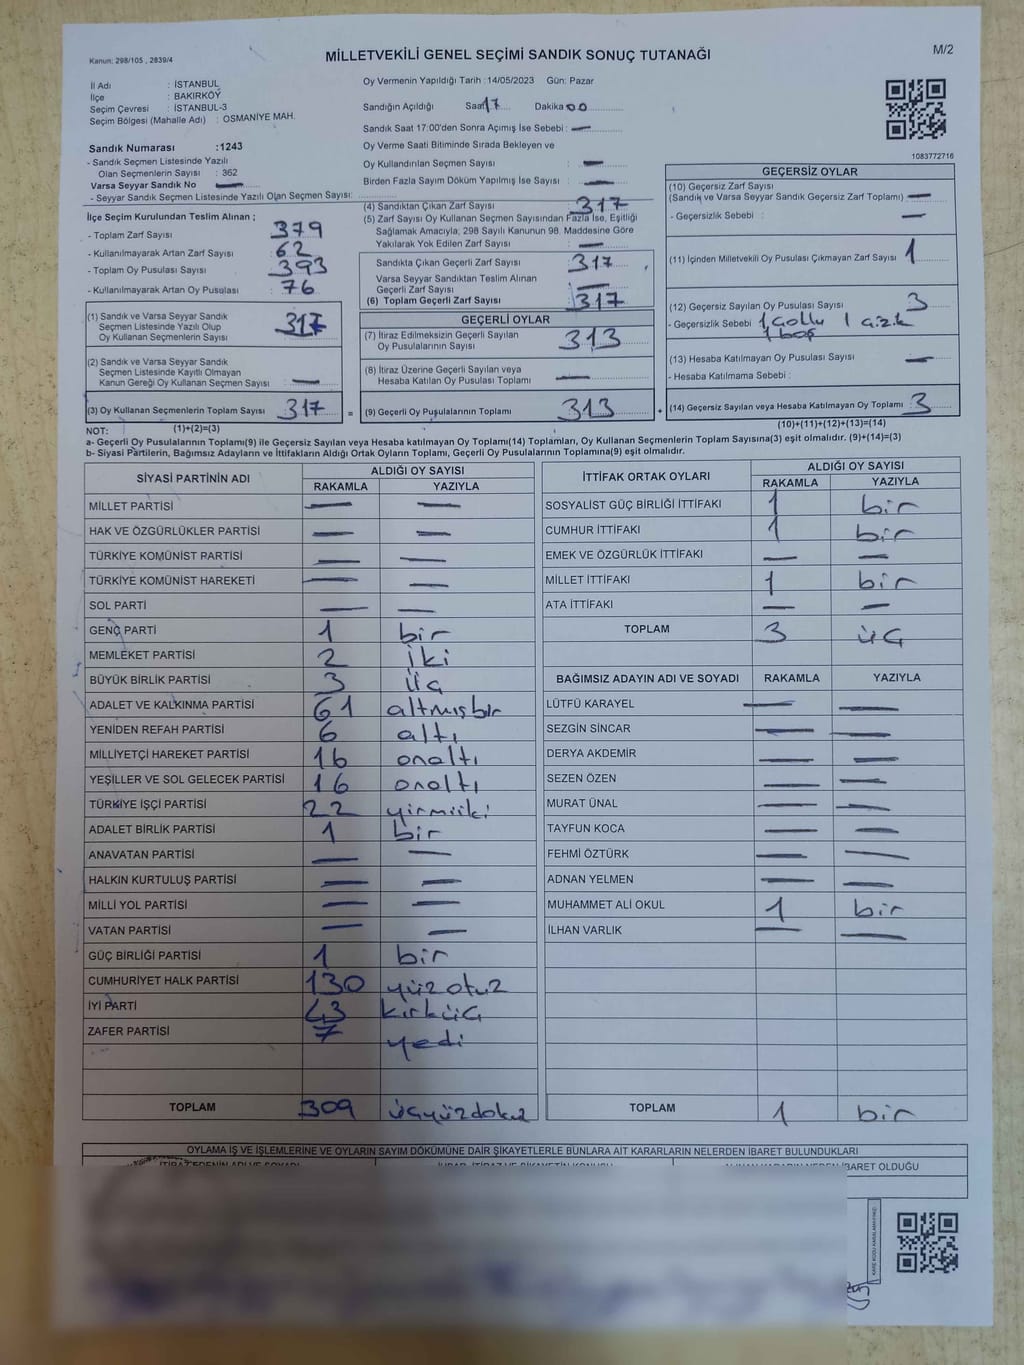 Kanun: 298/105 , 2839/4
MİLLETVEKİLİ GENEL SEÇİMİ SANDIK SONUÇ TUTANAĞI
M/2
İl Adı : İSTANBUL
İlçe : BAKIRKÖY
Seçim Çevresi : İSTANBUL-3
Seçim Bölgesi (Mahalle Adı) : OSMANİYE MAH.
Sandık Numarası :1243
- Sandık Seçmen Listesinde Yazılı
Olan Seçmenlerin Sayısı : 362
Varsa Seyyar Sandık No —
- Seyyar Sandık Seçmen Listesinde Yazılı Olan Seçmen Sayısı:
Oy Vermenin Yapıldığı Tarih :14/05/2023 Gün: Pazar
Sandığın Açıldığı Saat 17 Dakika 00
Sandık Saat 17:00'den Sonra Açımış İse Sebebi : —
Oy Verme Saati Bitiminde Sırada Bekleyen ve
Oy Kullandırılan Seçmen Sayısı : —
Birden Fazla Sayım Döküm Yapılmış İse Sayısı : —
1083772716
İlçe Seçim Kurulundan Teslim Alınan ;
- Toplam Zarf Sayısı : 379
- Kullanılmayarak Artan Zarf Sayısı : 62
- Toplam Oy Pusulası Sayısı : 393
- Kullanılmayarak Artan Oy Pusulası : 76
(1) Sandık ve Varsa Seyyar Sandık
Seçmen Listesinde Yazılı Olup
Oy Kullanan Seçmenlerin Sayısı : 317
(2) Sandık ve Varsa Seyyar Sandık
Seçmen Listesinde Kayıtlı Olmayan
Kanun Gereği Oy Kullanan Seçmen Sayısı : —
(3) Oy Kullanan Seçmenlerin Toplam Sayısı : 317 =
(1)+(2)=(3)
(4) Sandıktan Çıkan Zarf Sayısı : 317
(5) Zarf Sayısı Oy Kullanan Seçmen Sayısından Fazla İse, Eşitliği
Sağlamak Amacıyla, 298 Sayılı Kanunun 98. Maddesine Göre
Yakılarak Yok Edilen Zarf Sayısı : —
Sandıkta Çıkan Geçerli Zarf Sayısı : 317
Varsa Seyyar Sandıktan Teslim Alınan
Geçerli Zarf Sayısı : —
(6) Toplam Geçerli Zarf Sayısı : 317
GEÇERLİ OYLAR
(7) İtiraz Edilmeksizin Geçerli Sayılan
Oy Pusulalarının Sayısı : 313
(8) İtiraz Üzerine Geçerli Sayılan veya
Hesaba Katılan Oy Pusulası Toplamı : —
(9) Geçerli Oy Pusulalarının Toplamı : 313 +
GEÇERSİZ OYLAR
(10) Geçersiz Zarf Sayısı
(Sandık ve Varsa Seyyar Sandık Geçersiz Zarf Toplamı) —
- Geçersizlik Sebebi : —
(11) İçinden Milletvekili Oy Pusulası Çıkmayan Zarf Sayısı 1
(12) Geçersiz Sayılan Oy Pusulası Sayısı 3
- Geçersizlik Sebebi 1 çoklu 1 çizik
1 boş
(13) Hesaba Katılmayan Oy Pusulası Sayısı —
- Hesaba Katılmama Sebebi :
(14) Geçersiz Sayılan veya Hesaba Katılmayan Oy Toplamı 3
(10)+(11)+(12)+(13)=(14)
NOT:
a- Geçerli Oy Pusulalarının Toplamı(9) ile Geçersiz Sayılan veya Hesaba katılmayan Oy Toplamı(14) Toplamları, Oy Kullanan Seçmenlerin Toplam Sayısına(3) eşit olmalıdır. (9)+(14)=(3)
b- Siyasi Partilerin, Bağımsız Adayların ve İttifakların Aldığı Ortak Oyların Toplamı, Geçerli Oy Pusulalarının Toplamına(9) eşit olmalıdır.
SİYASİ PARTİNİN ADI
ALDIĞI OY SAYISI
RAKAMLA YAZIYLA
MİLLET PARTİSİ — —
HAK VE ÖZGÜRLÜKLER PARTİSİ — —
TÜRKİYE KOMÜNİST PARTİSİ — —
TÜRKİYE KOMÜNİST HAREKETİ — —
SOL PARTİ — —
GENÇ PARTİ 1 bir
MEMLEKET PARTİSİ 2 iki
BÜYÜK BİRLİK PARTİSİ 3 üç
ADALET VE KALKINMA PARTİSİ 61 altmışbir
YENİDEN REFAH PARTİSİ 6 altı
MİLLİYETÇİ HAREKET PARTİSİ 16 onaltı
YEŞİLLER VE SOL GELECEK PARTİSİ 16 onaltı
TÜRKİYE İŞÇİ PARTİSİ 22 yirmiiki
ADALET BİRLİK PARTİSİ 1 bir
ANAVATAN PARTİSİ — —
HALKIN KURTULUŞ PARTİSİ — —
MİLLİ YOL PARTİSİ — —
VATAN PARTİSİ — —
GÜÇ BİRLİĞİ PARTİSİ 1 bir
CUMHURİYET HALK PARTİSİ 130 yüzotuz
İYİ PARTİ 43 kırküç
ZAFER PARTİSİ 7 yedi
TOPLAM 309 üçyüzdokuz
İTTİFAK ORTAK OYLARI
ALDIĞI OY SAYISI
RAKAMLA YAZIYLA
SOSYALİST GÜÇ BİRLİĞİ İTTİFAKI 1 bir
CUMHUR İTTİFAKI 1 bir
EMEK VE ÖZGÜRLÜK İTTİFAKI — —
MİLLET İTTİFAKI 1 bir
ATA İTTİFAKI — —
TOPLAM 3 üç
BAĞIMSIZ ADAYIN ADI VE SOYADI RAKAMLA YAZIYLA
LÜTFÜ KARAYEL — —
SEZGİN SİNCAR — —
DERYA AKDEMİR — —
SEZEN ÖZEN — —
MURAT ÜNAL — —
TAYFUN KOCA — —
FEHMİ ÖZTÜRK — —
ADNAN YELMEN — —
MUHAMMET ALİ OKUL 1 bir
İLHAN VARLIK — —
TOPLAM 1 bir
OYLAMA İŞ VE İŞLEMLERİNE VE OYLARIN SAYIM DÖKÜMÜNE DAİR ŞİKAYETLERLE BUNLARA AİT KARARLARIN NELERDEN İBARET BULUNDUKLARI
İBARET OLDUĞU